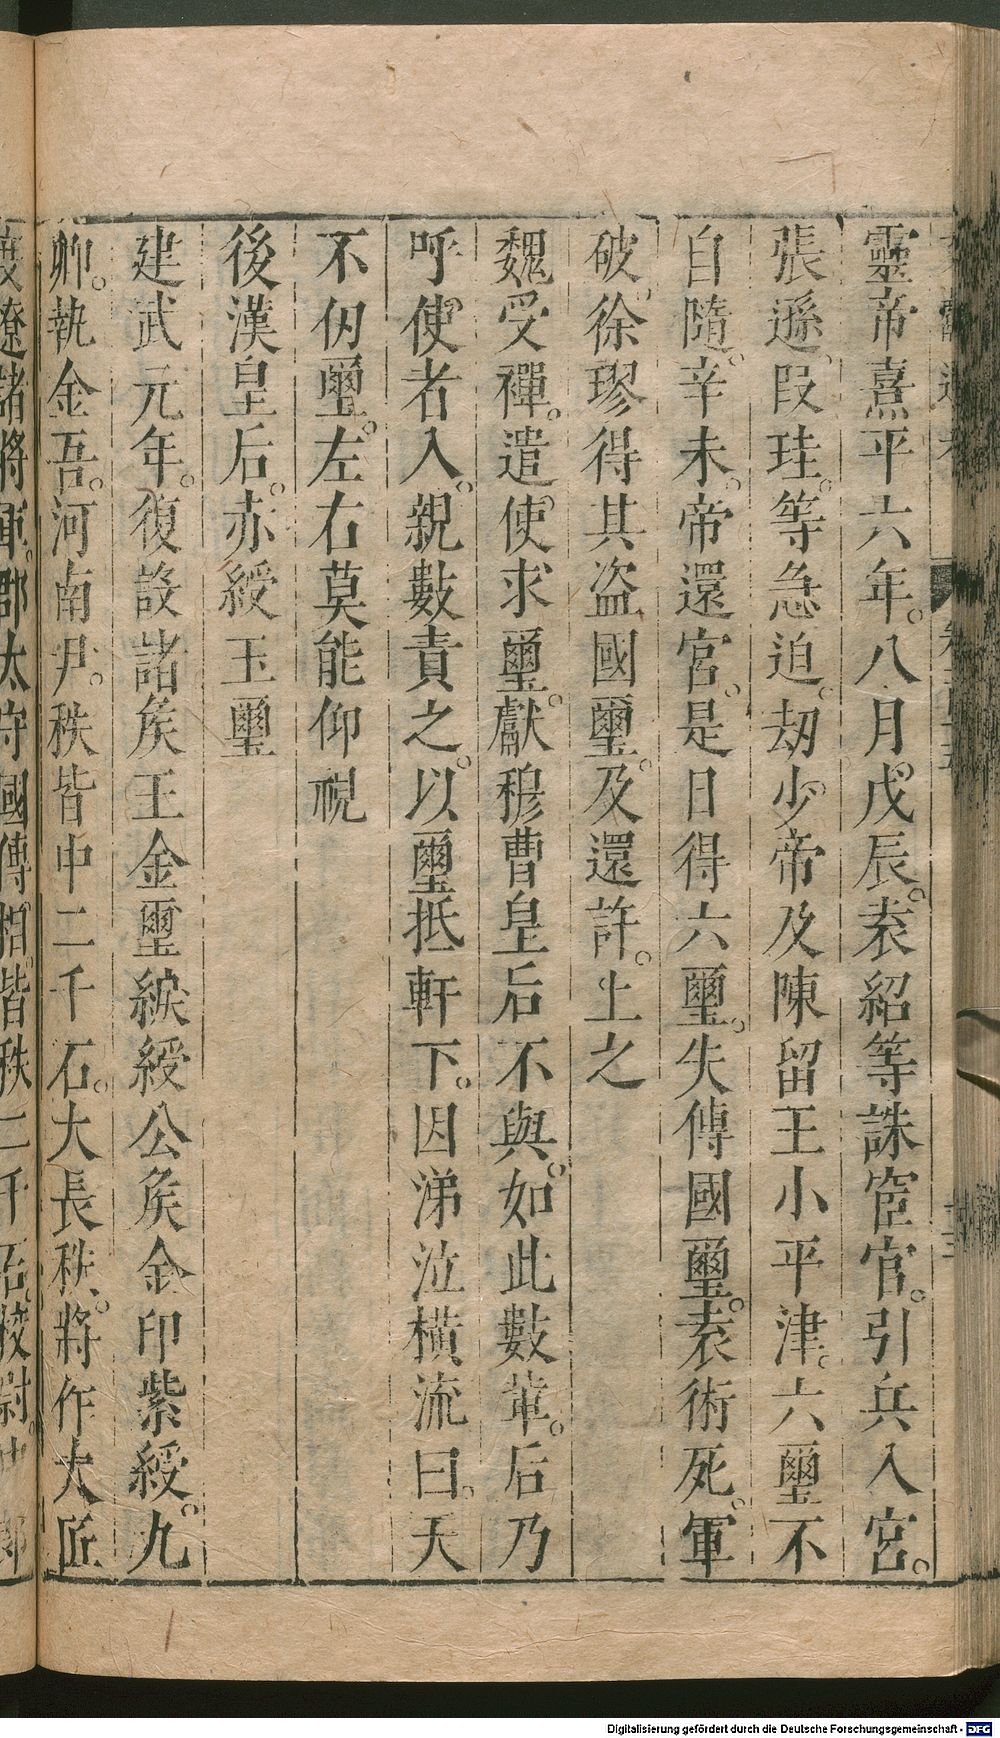 靈帝熹平六年。八月。戊辰。袁紹等誅宦官。引兵入宮。
張遜。段珪。等急迫。劫少帝及陳留王小平津。六璽不
自隨。辛未。帝還宮。是日得六璽。失傳國璽。袁術死。軍
破。徐璆得其盗國璽。及還許。上之
魏受禪。遣使求璽。獻穆曹皇后不與。如此數輩。后乃
呼使者入。親數責之。以璽抵軒下。因涕泣橫流曰。天
不仞璽。左右莫能仰視
後漢皇后。赤綬玉璽
建武元年。復設諸侯王金璽綟綬公侯金印紫綬。九
卿。執金吾。河南尹。秩皆中二千石。大長秋。將作大匠
度遼諸將軍。郡太守國傅。相。皆秩二千石。校尉。中郎
Digitalisierung gefördert durch die Deutsche Forschungsgemeinschaft - DFG